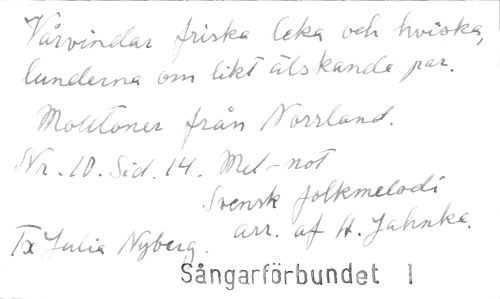 Vårvindar friska leka och hviska,
lunderna om likt älskande par.
Molltoner från Norrland.
Nr. 10. Sid. 14. Mel-not
Svensk folkmelodi
arr. af H. Jahnke.
Tx Julia Nyberg.
Sångarförbundet 1